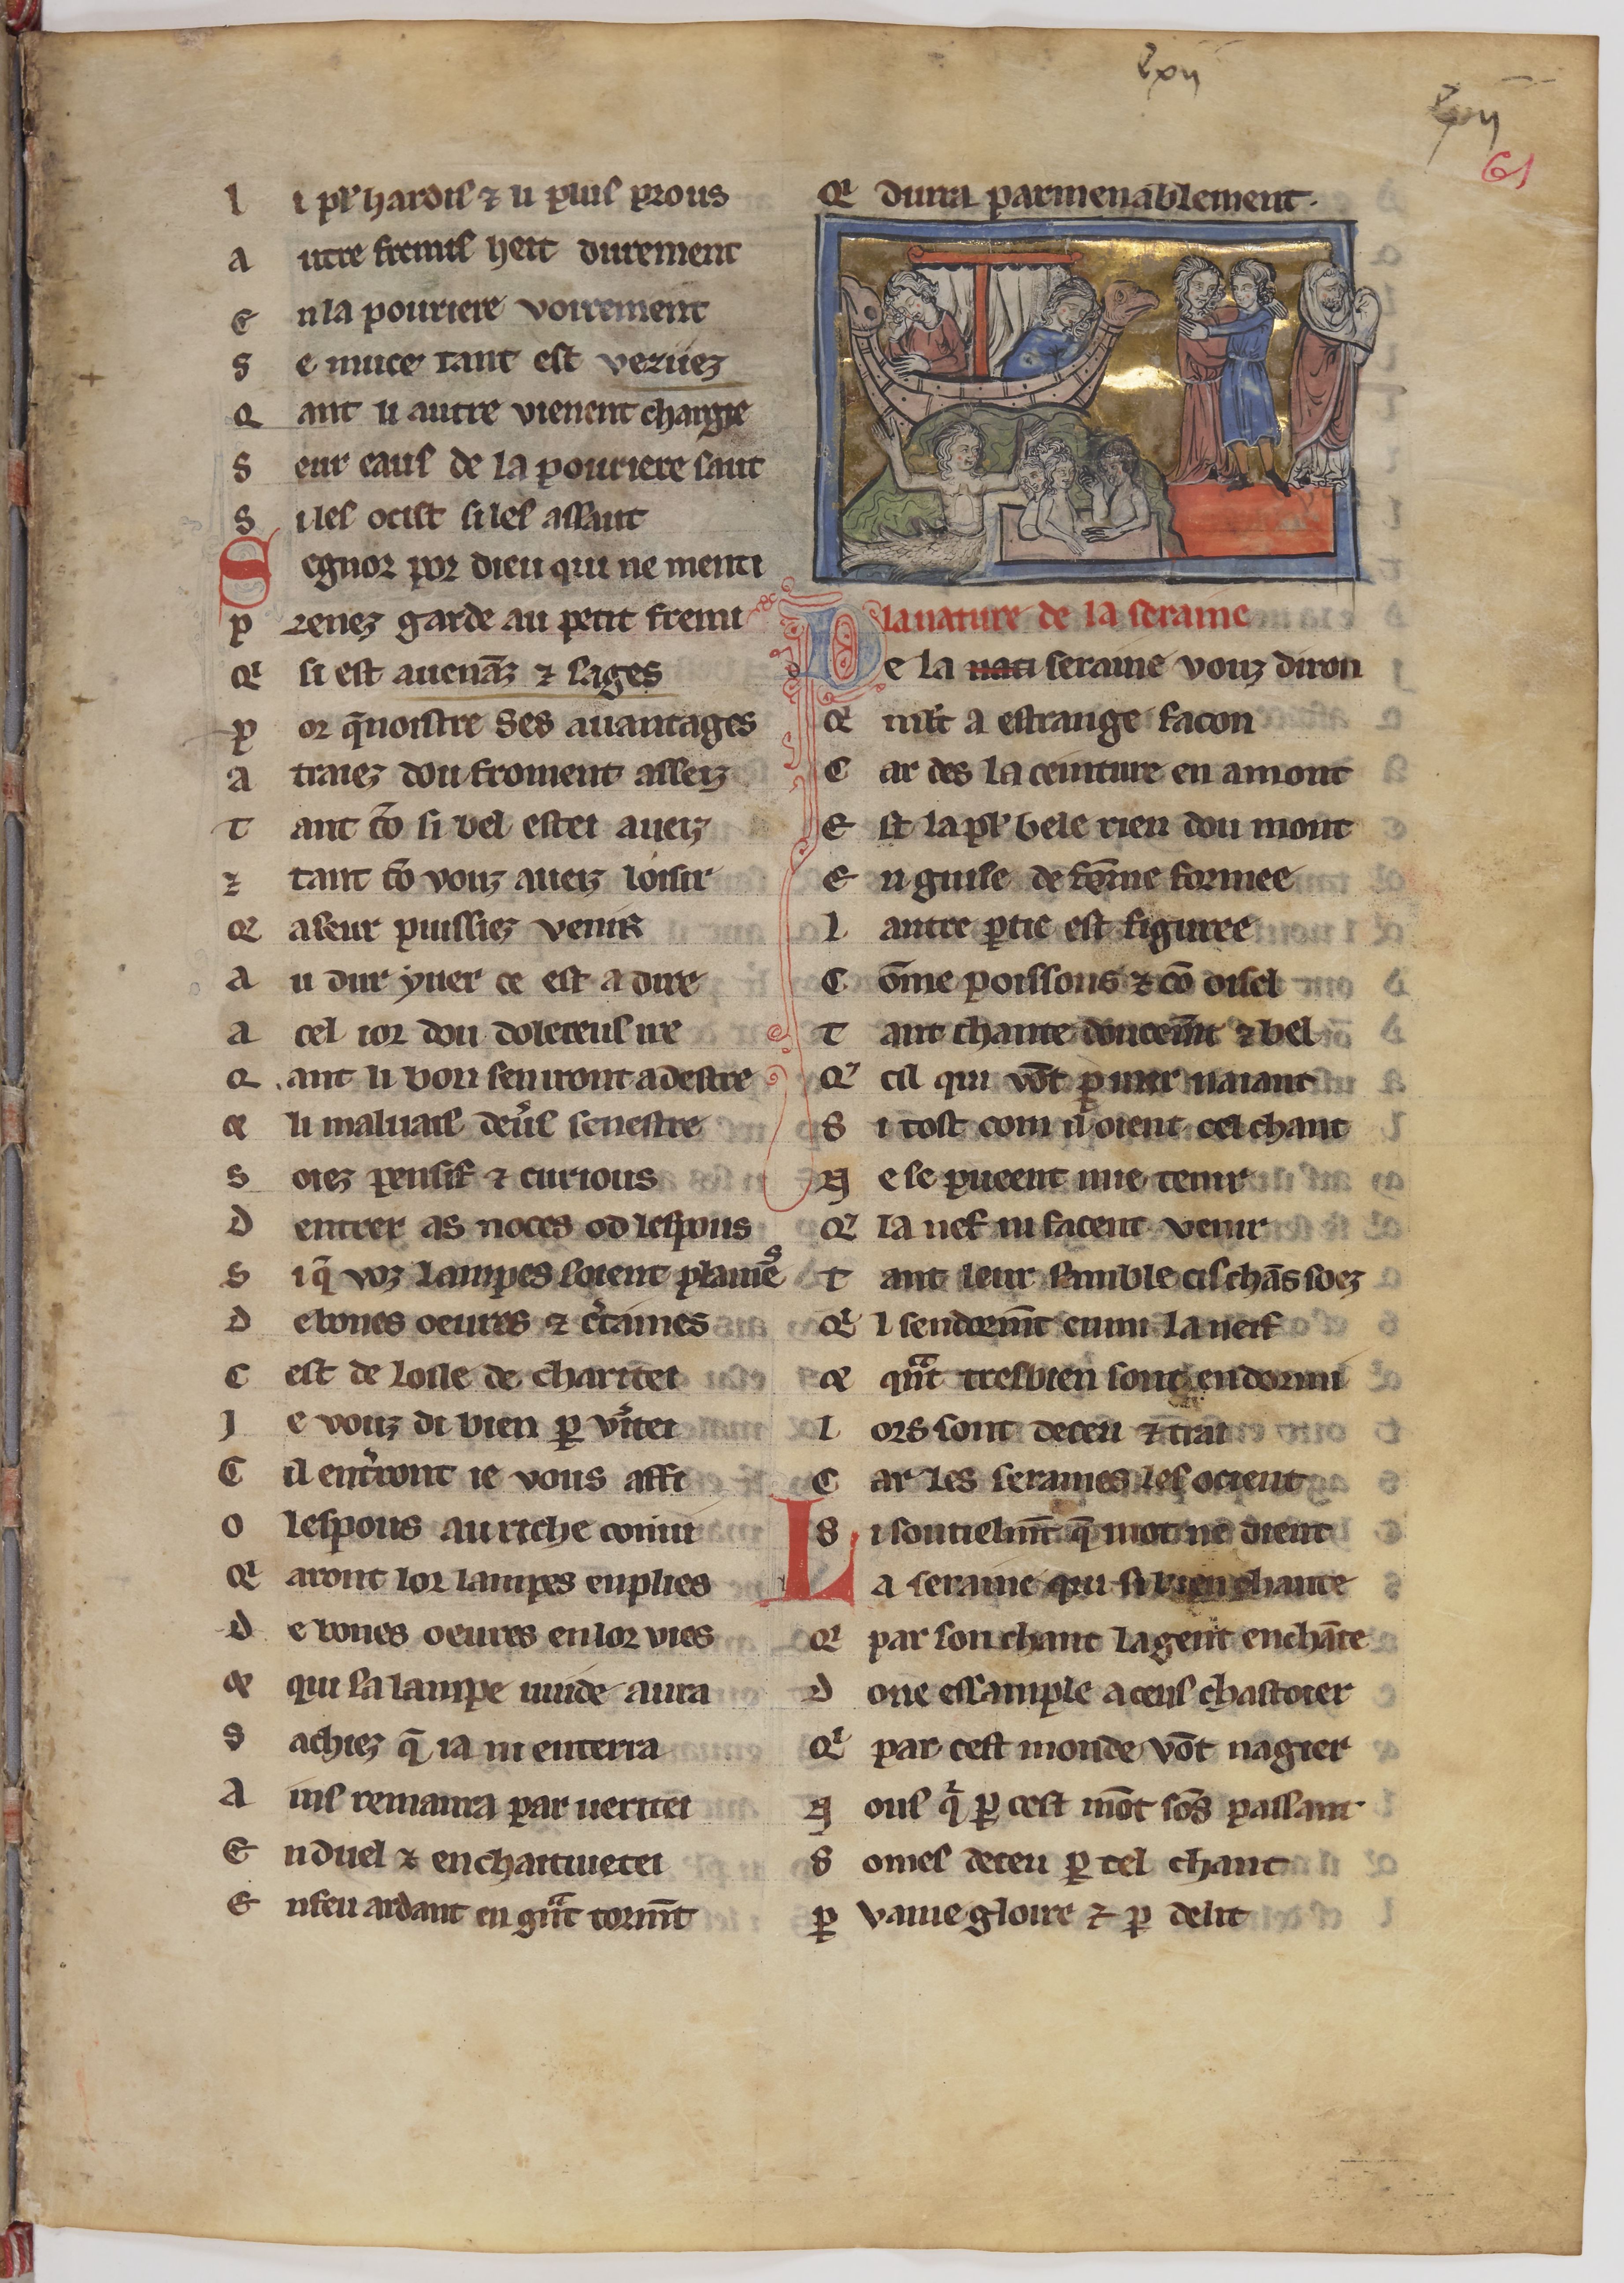 lxii
lxii
61
l i pl' hardis ⁊ li plus prous
a utre fremis heit durement
E n la pouriere voirement
S e muce tant est veziiez
Q ant li autre vienent chargie
S eur eaus de la pouriere saut
S i les ocist si les assaut
Segnor por dieu qui ne menti
p renez garde au petit fremi
Qi si est auena͞z ⁊ sages
P or q̄noistre ses auantages
a traiez dou froment asseiz
T ant cō si bel estei aueiz
⁊ tant cō vouz aueiz loisir
Q aseur puissiez venir
A u dur yuer ce est a dire
a cel ior dou dolereus ire
Q ant li bon sen iront a destre
⁊ li maluais deu's senestre
S oiez pensif ⁊ curious
D entrer as noces od lespous
S i q̄ voz lampes soient plainēs
D e bones oeures ⁊ c'taines
C est de loile de charitei
J e vouz di bien ꝑ v'itei
C il ent'ront ie vous affi
O lespous au riche conui
Qi aront lor lampes enplies
D e bones oeures en lor vies
⁊ qui sa lampe uuide aura
S achiez q̄ ia ni enterra
A ins remanra par ueritei
E n duel ⁊ en chaitiuetei
E n feu ardant en gͣnt torm̄t
Qi durra parmenablement.
De la nature de la seraine
e la nati seraine vouz diron
Qi mlt a estrange facon
C ar des la ceinture en amont
E st la pl' bele rien dou mont
E n guise de fēme formee
L autre ꝑtie est figuree
C ōme poissons ⁊ cō oisel
T ant chante doucem̄t ⁊ bel
Q' cil qui vōt ꝑ mer naiant
S i tost com il oient cel chant
N e se pueent mie tenir
Q' la nef ni facent venir
T ant leur samble cis chās soez
Qi l sendorm̄t enmi la neif
⁊ qͣnt tresbien sont endormi
L ors sont deceu ⁊ trai
C ar les seraines les ocient
S i soutielm̄t q̄ mot ne dient
La seraine qui si bien chante
Qi par son chant la gent enchāte
D one essample a ceus chastoier
Qi par cest monde vōt nagier
N ous q' ꝑ cest mōt sōs passant
S omes deceu ꝑ tel chant
ꝑ vaine gloire ⁊ ꝑ delit